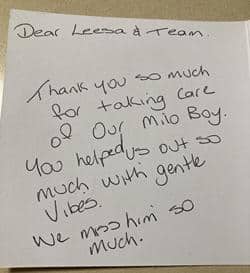 Dear Leesa & Team.
Thank you so much
for taking care
of our Milo Boy.
You helped us out so
much with gentle
Vibes.
We miss him so
much.